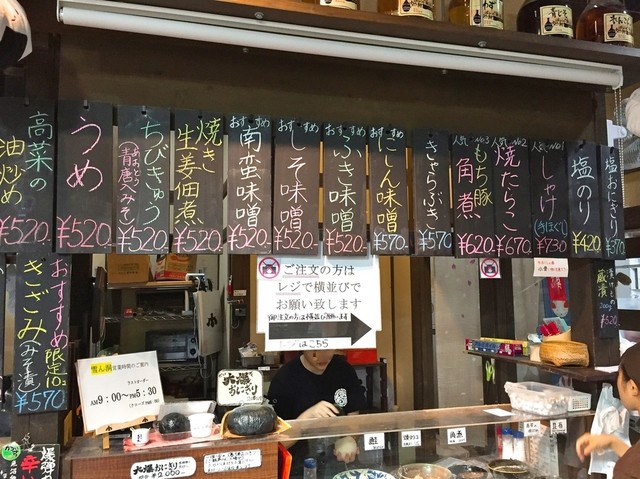 高菜の
油炒め
¥520.
うめ
¥520.
ちびきゅう
(青唐みそ)
¥520.
焼き
生姜佃煮
¥520.
おすすめ
南蛮味噌
¥520.
おすすめ
しそ味噌
¥520.
おすすめ
ふき味噌
¥520.
おすすめ
にしん味噌
¥570.
きゃらぶき
¥570
人気No3
もち豚
角煮
¥620.
人気No2
焼たらこ
¥670.
人気No1
しゃけ
(手ほぐし)
¥730
塩のり
¥420
塩おにぎり
¥370
おすすめ
限定10コ
きざみ(みそ漬)
¥570
ご注文の方は
レジで横並びで
お願い致します
レジはこちら
雪ん洞 営業時間のご案内
ラストオーダー
AM9:00~PM5:30
大爆おにぎり
大爆おにぎり
¥2,000